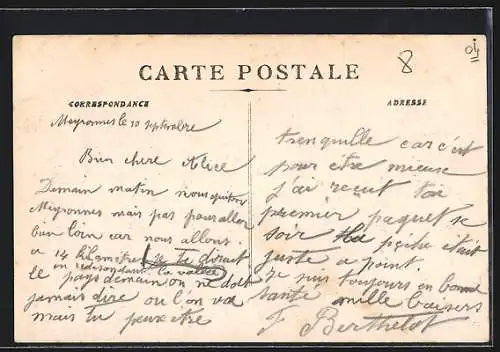 CARTE POSTALE
CORRESPONDANCE
ADRESSE
8
Meyronnes le 10 septembre
Bien chère Alice
Demain matin nous quitons
Meyronnes mais pas pour aller
bien loin car nous allons
a 14 kilomètres
en redescendant la vallée
le pays demain on ne doit
jamais dire ou l'on va
mais tu peux etre
tranquille car c'est
pour etre mieux
j'ai reçut ton
premier paquet ce
soir la pèche était
juste a point.
Je suis toujours en bonne
santé mille baisers
F Berthelot